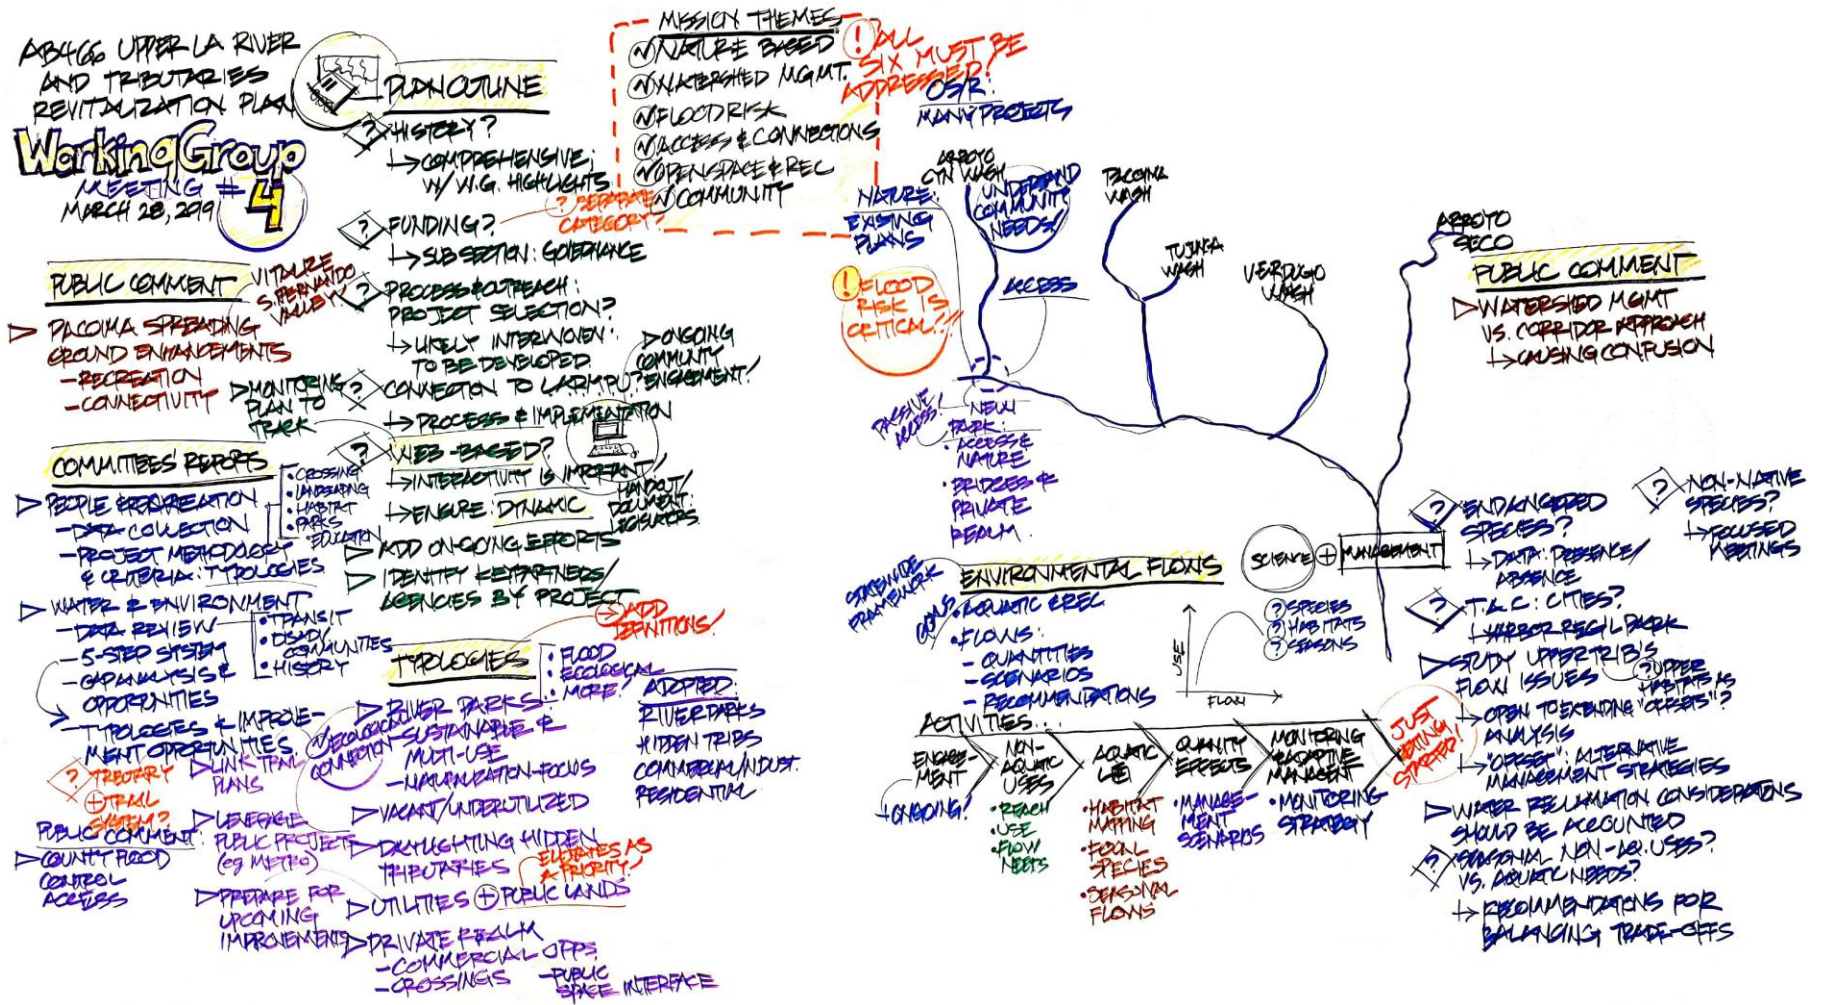 AB466 UPPER LA RIVER
AND TRIBUTARIES
REVITALIZATION PLAN
Working Group
MEETING # 4
MARCH 28, 2019
PUBLIC COMMENT
VITALIZE
S. FERNANDO
VALLEY!
▷ PACOIMA SPREADING
GROUND ENHANCEMENTS
- RECREATION
- CONNECTIVITY
▷ MONITORING
PLAN TO
TRACK
COMMITTEES' REPORTS
▷ PEOPLE & RECREATION
- DATA COLLECTION
- PROJECT METHODOLOGY
& CRITERIA: TYPOLOGIES
• CROSSING
• LANDSCAPING
• HABITAT
• PARKS
• EDUCATION
▷ WATER & ENVIRONMENT
- DATA REVIEW
- 5-STEP SYSTEM
- GAP ANALYSIS &
OPPORTUNITIES
- TYPOLOGIES & IMPROVE-
MENT OPPORTUNITIES
• TRANSIT
• DISADV.
COMMUNITIES
• HISTORY
? TRIBUTARY
+ TRAIL
SYSTEM?
PUBLIC COMMENT:
▷ COUNTY FLOOD
CONTROL
ACCESS
▷ LINK TRAIL
PLANS
▷ LEVERAGE
PUBLIC PROJECTS
(eg METRO)
▷ PREPARE FOR
UPCOMING
IMPROVEMENTS
PLAN OUTLINE
? HISTORY?
↳ COMPREHENSIVE;
W/ W.G. HIGHLIGHTS
? FUNDING?
? SEPARATE
CATEGORY?
↳ SUBSECTION: GOVERNANCE
? PROCESS & OUTREACH:
PROJECT SELECTION?
↳ LIKELY INTERWOVEN:
TO BE DEVELOPED
▷ ONGOING
COMMUNITY
ENGAGEMENT!
? CONNECTION TO LARMPU?
↳ PROCESS & IMPLEMENTATION
? WEB-BASED?
↳ INTERACTIVITY IS IMPORTANT!
↳ ENSURE: DYNAMIC
HANDOUT/
DOCUMENT:
LEGISLATORS.
▷ ADD ON-GOING EFFORTS
▷ IDENTIFY KEY PARTNERS/
AGENCIES BY PROJECT
→ ADD
DEFINITIONS!
TYPOLOGIES
• FLOOD
• ECOLOGICAL
• MORE!
▷ RIVER PARKS
- SUSTAINABLE &
MULTI-USE
- NATURALIZATION-FOCUS
✓ ECOLOGICAL
CONNECTION
▷ VACANT/UNDERUTILIZED
▷ DAYLIGHTING HIDDEN
TRIBUTARIES
ELEVATES AS
A PRIORITY!
▷ UTILITIES + PUBLIC LANDS
▷ PRIVATE REALM
- COMMERCIAL OPPS
- CROSSINGS
- PUBLIC
SPACE INTERFACE
ADOPTED:
RIVER PARKS
HIDDEN TRIBS
COMMERCIAL/INDUST.
RESIDENTIAL
MISSION THEMES
✓ NATURE BASED
✓ WATERSHED MGMT.
✓ FLOOD RISK
✓ ACCESS & CONNECTIONS
✓ OPEN SPACE & REC
✓ COMMUNITY
! ALL
SIX MUST BE
ADDRESSED!
OS/R:
MANY PROJECTS
NATURE:
EXISTING
PLANS
! FLOOD
RISK IS
CRITICAL!!!
ARROYO
CYN WASH
UNDERSTAND
COMMUNITY
NEEDS!
ACCESS
PACOIMA
WASH
TUJUNGA
WASH
VERDUGO
WASH
ARROYO
SECO
PASSIVE
ACCESS!
NEW
PARK:
• ACCESS &
NATURE
• BRIDGES &
PRIVATE
REALM
PUBLIC COMMENT
▷ WATERSHED MGMT
VS. CORRIDOR APPROACH
↳ CAUSING CONFUSION
ENVIRONMENTAL FLOWS
SCIENCE + MANAGEMENT
STATEWIDE
FRAMEWORK
GOALS
• AQUATIC & REC
• FLOWS:
- QUANTITIES
- SCENARIOS
- RECOMMENDATIONS
USE
FLOW
? SPECIES
? HABITATS
? SEASONS
ACTIVITIES...
ENGAGE-
MENT
↳ ONGOING!
NON-
AQUATIC
USES
• REACH
• USE
• FLOW
NEEDS
AQUATIC
LIFE
• HABITAT
MAPPING
• FOCAL
SPECIES
• SEASONAL
FLOWS
QUANTITY
EFFECTS
• MANAGE-
MENT
SCENARIOS
MONITORING
& ADAPTIVE
MANAGEMENT
• MONITORING
STRATEGY
JUST
GETTING
STARTED!
? ENDANGERED
SPECIES?
↳ DATA: PRESENCE/
ABSENCE
? NON-NATIVE
SPECIES?
↳ FOCUSED
MEETINGS
? T.A.C: CITIES?
↳ HARBOR REG'L PARK
▷ STUDY UPPER TRIB'S
FLOW ISSUES
? UPPER
HABITATS AS
"OFFSETS"?
↳ OPEN TO EXTENDING
ANALYSIS
↳ "OFFSET": ALTERNATIVE
MANAGEMENT STRATEGIES
▷ WATER RECLAMATION CONSIDERATIONS
SHOULD BE ACCOUNTED
? SEASONAL NON-AQ. USES?
VS. AQUATIC NEEDS?
↳ RECOMMENDATIONS FOR
BALANCING TRADE-OFFS